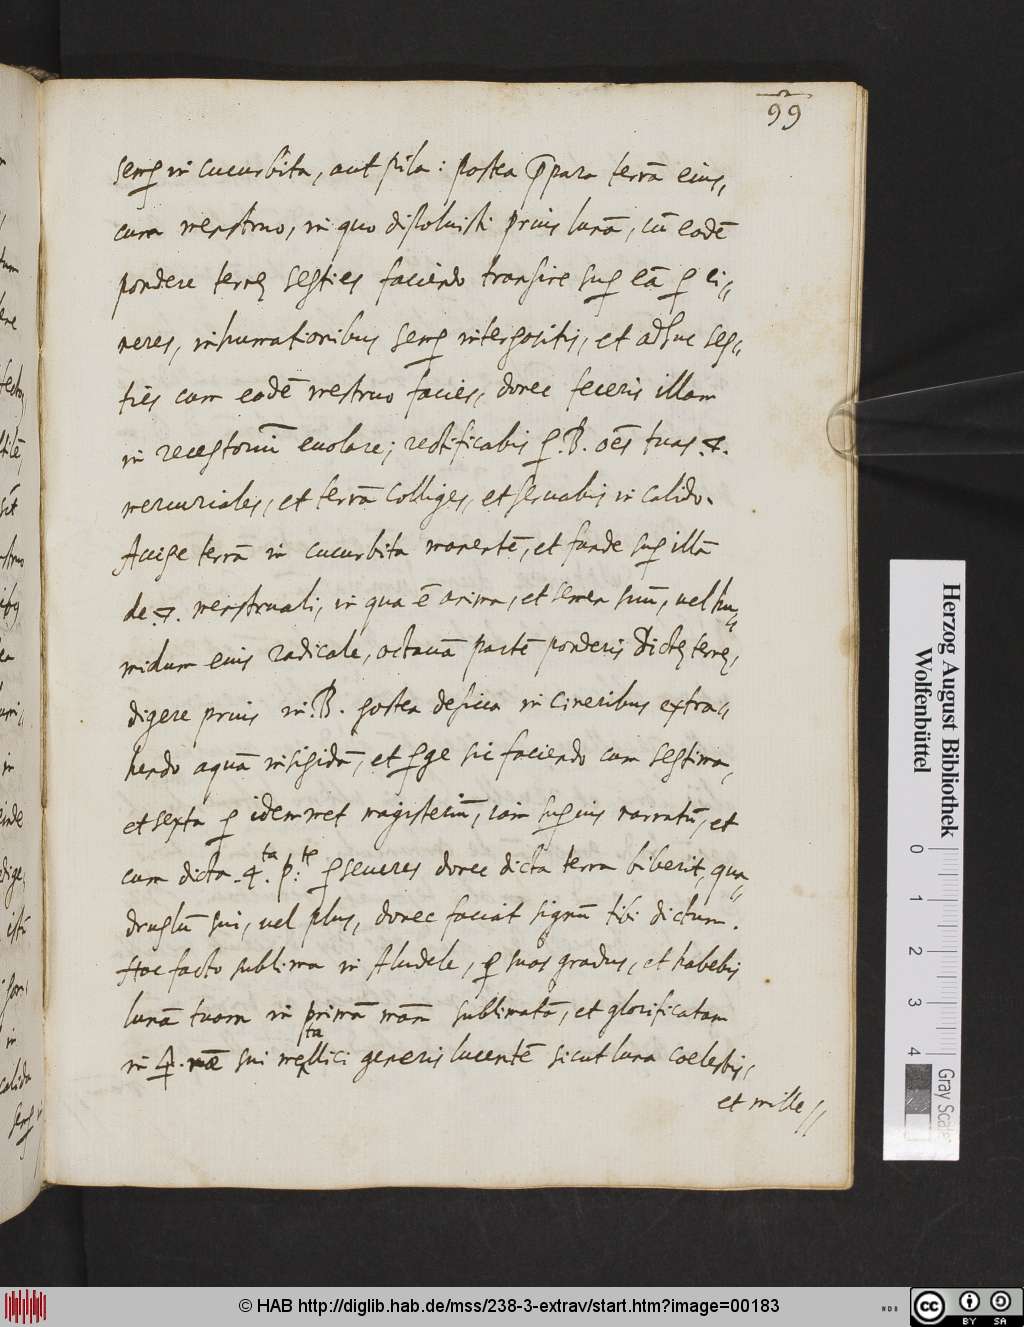 99
semꝑ in cucurbita, aut pila: postea p̄para terrā eius,
cum menstruo, in quo dissoluisti prius lunā, cū eodē
pondere terrę septies faciendo transire suꝑ eā ꝑ ci„
neres, inhumationibus semꝑ interpositis, et adhuc sep„
ties cum eodē mestruo facies, donec feceris illam
in receptoriū euolare; rectificabis ꝑ .B. oēs tuas .4.
mercuriales, et terrā colliges, et seruabis in calido.
Accipe terrā in cucurbita manentē, et funde suꝑ illā
de .4. menstruali, in qua ē anima, et semen suū, uel hu„
midum eius radicale, octauā partē ponderis dictę terrę,
digere prius in .B. postea desicca in cineribus extra„
hendo aquā insipidā, et ꝑge sic faciendo cum septima,
et sexta ꝑ idemmet magisteriū, iam suꝑius narratū, et
cum dicta .4.ta p:te ꝑseueres donec dicta terra biberit, qua„
druplū sui, uel plus, donec faciat signū tibi dictum.
Hoc facto sublima in Aludele, ꝑ suos gradus, et habebis
lunā tuam in primā mām sublimatā, et glorificatam
in .4. nāe sui metallici generis lucentē sicut luna coelestis,
et mille //
Herzog August Bibliothek
Wolfenbüttel
0 1 2 3 4
Gray Scale
© HAB http://diglib.hab.de/mss/238-3-extrav/start.htm?image=00183
NDB
cc BY SA